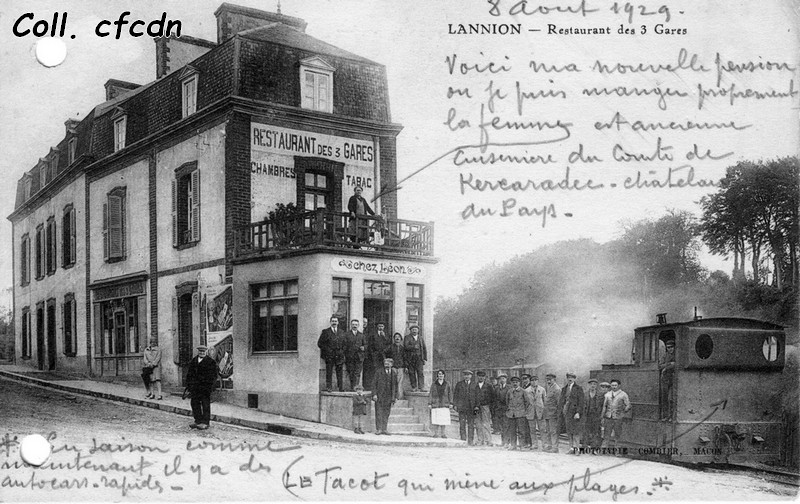 Coll. cfcdn
8 Août 1929.
LANNION – Restaurant des 3 Gares
Voici ma nouvelle pension
ou je puis manger proprement
la femme est ancienne
cuisinière du Comte de
Kercaradec - châtelain
du Pays -
RESTAURANT DES 3 GARES
CHAMBRES
TABAC
chez Léon
PHOTOTYPIE COMBIER, MACON
* En saison comme
maintenant il y a des
autocars-rapides -
(Le Tacot qui mène aux plages. *